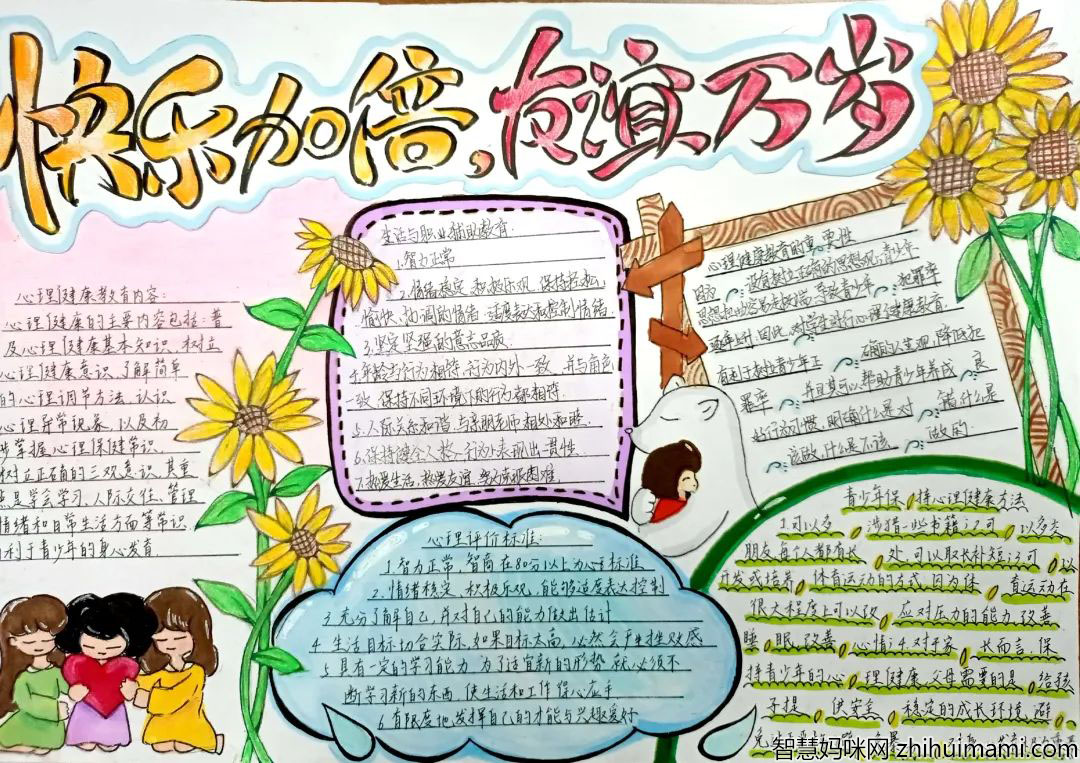 快乐加倍,友谊万岁
心理健康教育内容:
心理健康的主要内容包括:普
及心理健康基本知识,树立
心理健康意识,了解简单
的心理调节方法,认识
心理异常现象,以及初
步掌握心理保健常识,
树立正确的三观意识,其重
点是学会学习、人际交往、管理
情绪和日常生活方面等常识
利于青少年的身心发育.
生活与职业辅助教育.
1.智力正常
2.情绪稳定,积极乐观,保持轻松,
愉快,协调的情绪,适度表达和控制情绪.
3.坚定坚强的意志品质.
4.年龄与行为相符,行为内外一致,并与角色
一致,保持不同环境下的行为都相符.
5.人际关系和谐,与亲朋老师相处和睦.
6.保持健全人格,行为表现出一贯性.
7.热爱生活,热爱友谊,
心理健康教育的重要性
因为,没有树立正确的思想观,青少年
思想
逐年上升,因此,对学生进行心理健康教育.
有利于树立青少年正确的人生观,降低犯
罪率,并且其可以帮助青少年养成良
好行为习惯,明确什么是对,错什么是
该做,什么是不该做的.
心理评价标准:
1.智力正常,智商在80分以上为心标准
2.情绪稳定,积极乐观,能够适度表达控制
3.充分了解自己,并对自己的能力做出估计
4.生活目标切合实际,如果目标太高,必然会产生挫败感
5.具有一定的学习能力,为了适宜新的形势,就必须不
断学习新的东西,使生活和工作得心应手
6.有限度地发挥自己的才能与兴趣爱好
青少年保持心理健康方法
1.可以多涉猎一些书籍;2.可以多交
朋友,每个人都有长处,可以取长补短;3.可以
开发或培养体育运动的方式,因为体育运动在
很大程度上可以改应对压力的能力,改善
睡眠,改善心情;4.对于家长而言,保
持青少年的心理健康,父母需要的是给孩
子提供安全稳定的成长环境,避
智慧妈咪网 zhihuimami.com